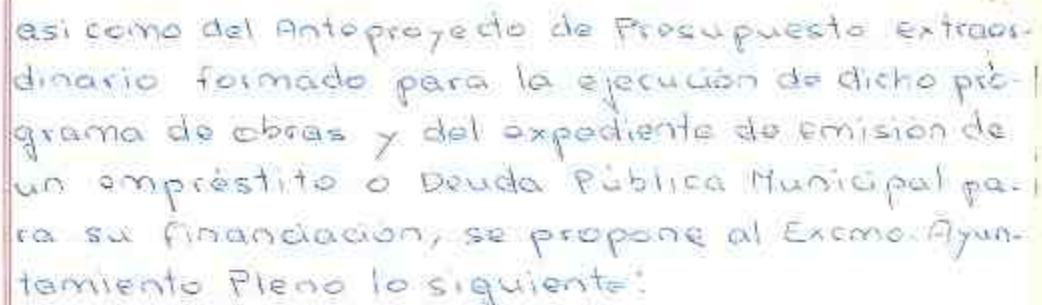 asi como del Anteproyecto de Presupuesto extraor-
dinario formado para la ejecución de dicho pro-
grama de obras y del expediente de emisión de
un empréstito o Deuda Pública Municipal pa-
ra su financiación, se propone al Excmo. Ayun-
tamiento Pleno lo siguiente: